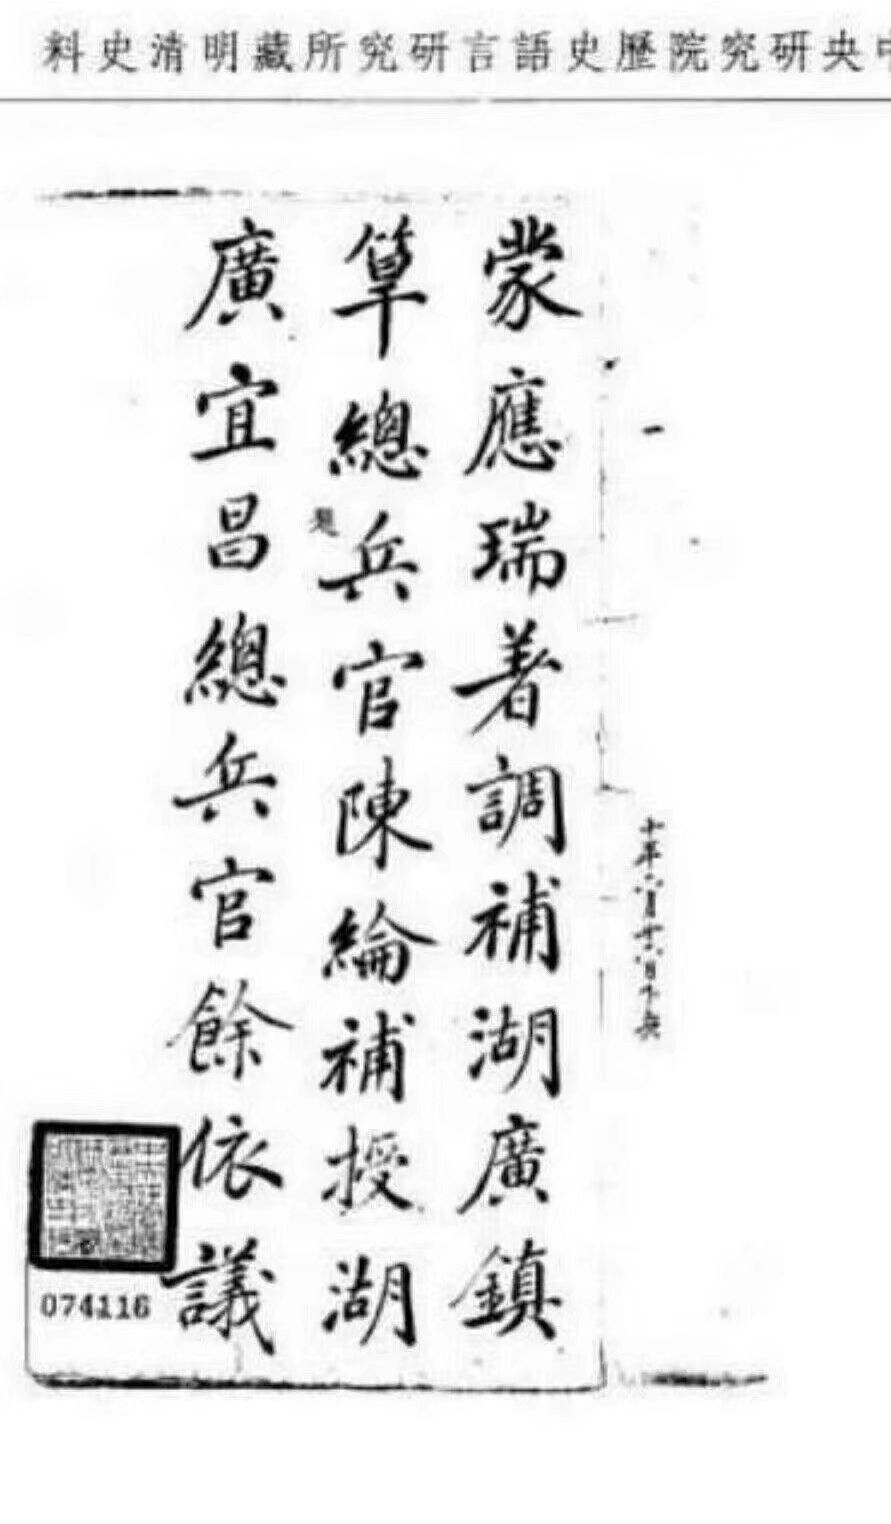 中央研究院歷史語言研究所藏明清史料
十年六月十六日下兵
蒙應瑞著調補湖廣鎮
筸總兵官陳綸補授湖
廣宜昌總兵官餘依議
074116